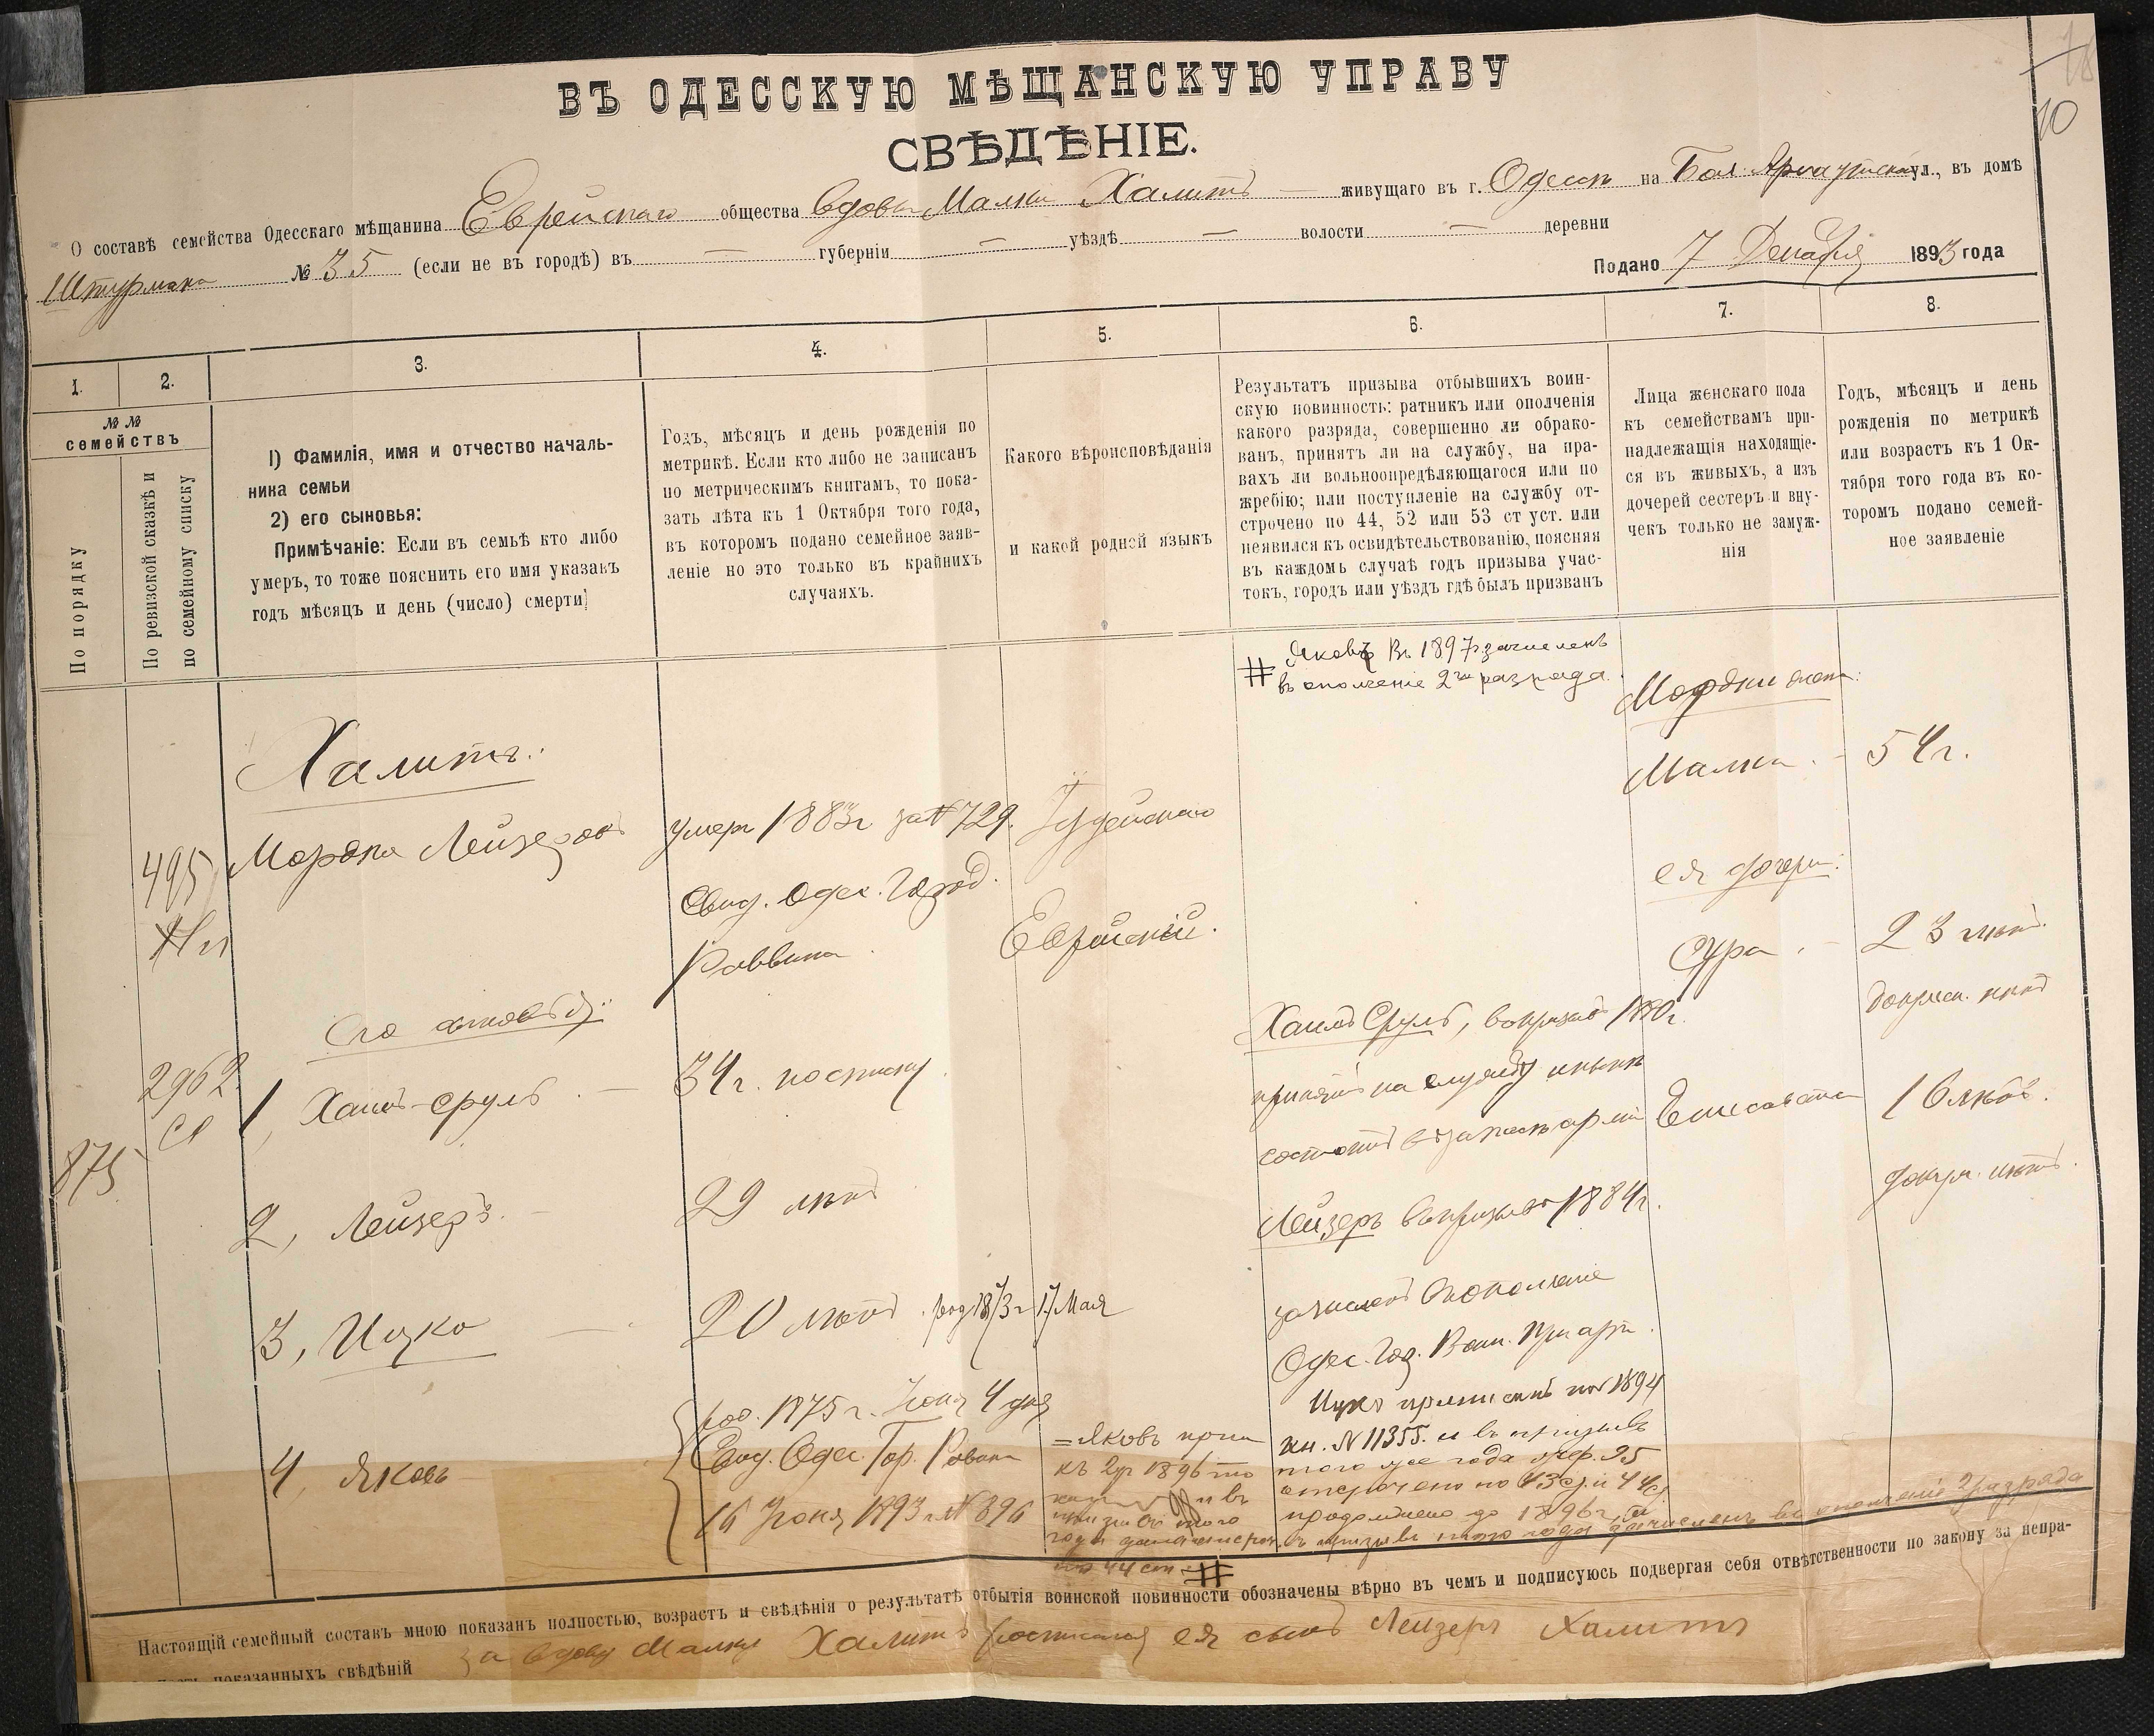 ВЪ ОДЕССКУЮ МѢЩАНСКУЮ УПРАВУ
СВѢДѢНІЕ.
10
О составѣ семейства Одесскаго мѣщанина Еврейскаго общества вдовы Малки Халитъ — живущаго въ г. Одессѣ на Бол. Арнаутской ул., въ домѣ
Штурмана № 35 (если не въ городѣ) въ — губерніи — уѣздѣ — волости — деревни
Подано 7 Декабря 1893 года
1.
2.
3.
4.
5.
6.
7.
8.
№ №
семействъ
По порядку
По ревизской сказкѣ и
по семейному списку
1) Фамилія, имя и отчество началь-
ника семьи
2) его сыновья:
Примѣчаніе: Если въ семьѣ кто либо
умеръ, то тоже пояснить его имя указавъ
годъ мѣсяцъ и день (число) смерти
Годъ, мѣсяцъ и день рожденія по
метрикѣ. Если кто либо не записанъ
по метрическимъ книгамъ, то пока-
зать лѣта къ 1 Октября того года,
въ которомъ подано семейное заяв-
леніе но это только въ крайнихъ
случаяхъ.
Какого вѣроисповѣданія
и какой родной языкъ
Результатъ призыва отбывшихъ воин-
скую повинность: ратникъ или ополченія
какого разряда, совершенно ли обрако-
ванъ, принятъ ли на службу, на пра-
вахъ ли вольноопредѣляющагося или по
жребію; или поступленіе на службу от-
строчено по 44, 52 или 53 ст уст. или
неявился къ освидѣтельствованію, поясняя
въ каждомъ случаѣ годъ призыва учас-
токъ, городъ или уѣздъ гдѣ былъ призванъ
Лица женскаго пола
къ семействамъ при-
надлежащія находящіе-
ся въ живыхъ, а изъ
дочерей сестеръ и вну-
чекъ только не замуж-
нія
Годъ, мѣсяцъ и день
рожденія по метрикѣ
или возрастъ къ 1 Ок-
тября того года въ ко-
торомъ подано семей-
ное заявленіе
# Яковъ Въ 1897 г. зачисленъ
въ ополченіе 2го разряда.
Мордки жена:
Халитъ:
Малка. — 54 г.
495
Мордко Лейзеровъ
умеръ 1883 г за № 729.
Свид. Одес. Город.
Раввина.
Іудейскаго
Еврейскій.
ея дочери:
Сура. — 23 лѣтъ.
Его сыновья:
2962
875
1, Хаимъ-Сруль. — 34 г. по списку.
Хаимъ Сруль, въ призывъ 1880 г.
принятъ на службу и нынѣ
состоитъ въ запасѣ арміи
Елисавета 16 лѣтъ.
2, Лейзеръ. — 29 лѣтъ
Лейзеръ въ призывъ 1884 г.
зачисленъ въ ополченіе
Одес. Гор. Воин. Присут.
3, Ицко — 20 лѣтъ. род 1873 г 17 Мая
Ицко приписанъ по 1894
уч. № 11355. и въ призывъ
того же года жр. 95
отсрочено по 43 ст и 44 ст
продолжено до 1896 г, въ
призывъ того года зачисленъ въ ополченіе 2 разряда
4, Яковъ
род. 1875 г. Іюня 4 дня
Свид. Одес. Гор. Раввина
16 Іюня 1893 г № 896
= Яковъ прип
къ 2 уч 1896
и въ
призывъ того
года дана отсроч.
по 44 ст = #
Настоящій семейный составъ мною показанъ полностью, возрастъ и свѣдѣнія о результатѣ отбытія воинской повинности обозначены вѣрно въ чемъ и подписуюсь подвергая себя отвѣтственности по закону за непра-
показанныхъ свѣдѣній за вдову Малку Халитъ росписался ея сынъ Лейзеръ Халитъ